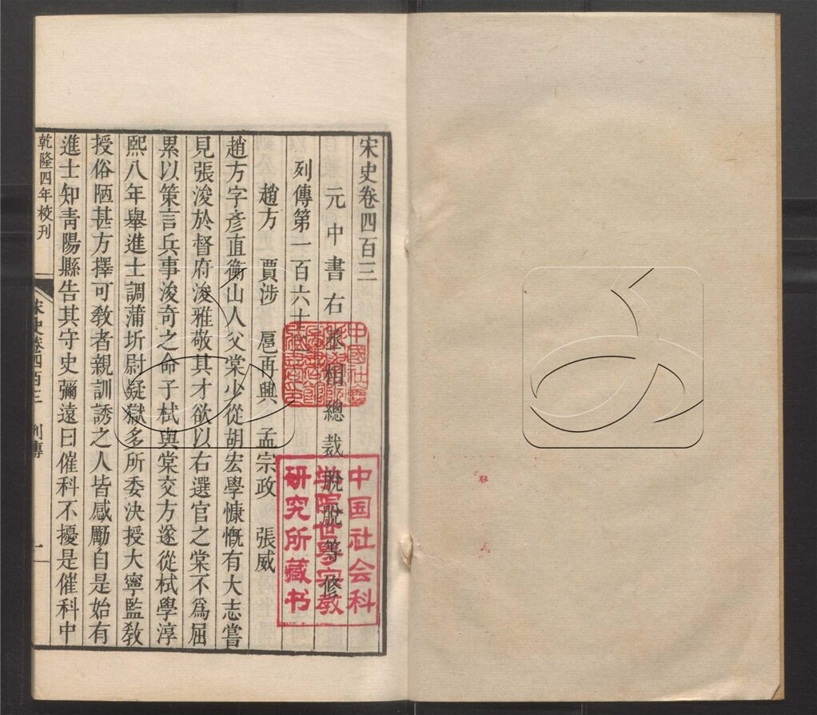 宋史卷四百三
元中書右丞相總裁脫脫等修
列傳第一百六十
趙方 賈涉 扈再興 孟宗政 張威
趙方字彥直衡山人父棠少從胡宏學慷慨有大志嘗
見張浚於督府浚雅敬其才欲以右選官之棠不爲屈
累以策言兵事浚奇之命子栻與棠交方遂從栻學淳
熙八年舉進士調蒲圻尉疑獄多所委決授大寧監敎
授俗陋甚方擇可敎者親訓誘之人皆感勵自是始有
進士知靑陽縣告其守史彌遠曰催科不擾是催科中
乾隆四年校刊
宋史卷四百三 列傳
一
中国社会科
学院世界宗教
研究所藏书